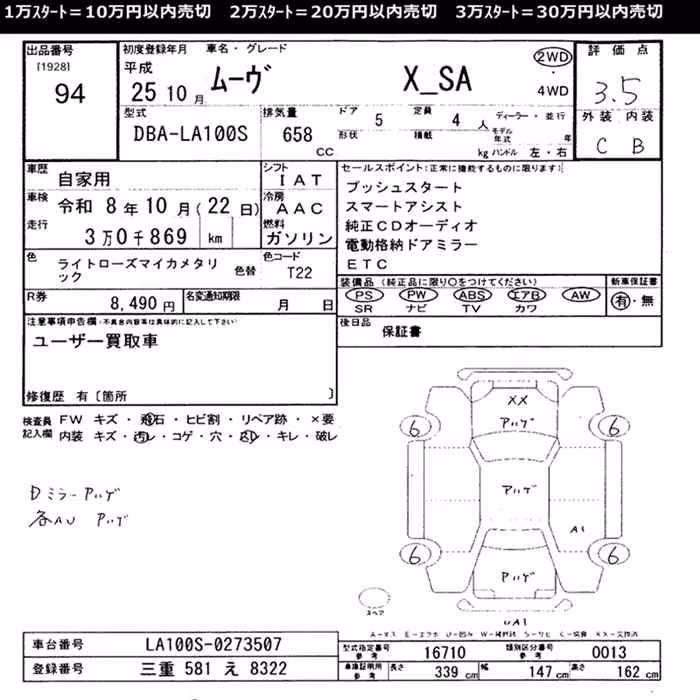 1万ｽﾀｰﾄ＝10万円以内売切　2万ｽﾀｰﾄ＝20万円以内売切　3万ｽﾀｰﾄ＝30万円以内売切
出品番号
[1928]
94
初度登録年月 車名・グレード
平成
25 10 月
ムーヴ X_SA
2WD
・
4WD
評価点
3.5
外装 内装
C B
型式
DBA-LA100S
排気量
658
CC
ドア 5 定員 4 人
形状 積載 kg
ディーラー・並行
モデル年式 年
ハンドル 左・右
車歴 自家用
車検 令和 8年10月(22日)
走行 3万0千869 km
シフト
IAT
冷房
AAC
燃料
ガソリン
セールスポイント:(正常に機能するものに限ります)
プッシュスタート
スマートアシスト
純正CDオーディオ
電動格納ドアミラー
ETC
色 ライトローズマイカメタリック 色替
色コード
T22
装備品 (純正品に限り○をつけてください)
PS PW ABS エアB AW
SR ナビ TV カワ
新車保証書
有・無
R券 8,490 円
名変通知期限 月 日
後日品 保証書
注意事項申告欄・不具合内容等は具体的に記入して下さい
ユーザー買取車
修復歴 有〔箇所 〕
検査員 FW キズ・飛石・ヒビ割・リペア跡・×要
記入欄 内装 キズ・汚レ・コゲ・穴・凹レ・キレ・破レ
Dミラーアハゲ
各AU アハゲ
XX
アハゲ
6 6
アハゲ
A1
6 6
アハゲ
スペア
UA1
車台番号 LA100S-0273507
登録番号 三重 581 え 8322
型式指定番号 参考 16710 類別区分番号 参考 0013
車庫証明用 参考 長さ 339 cm 幅 147 cm 高さ 162 cm